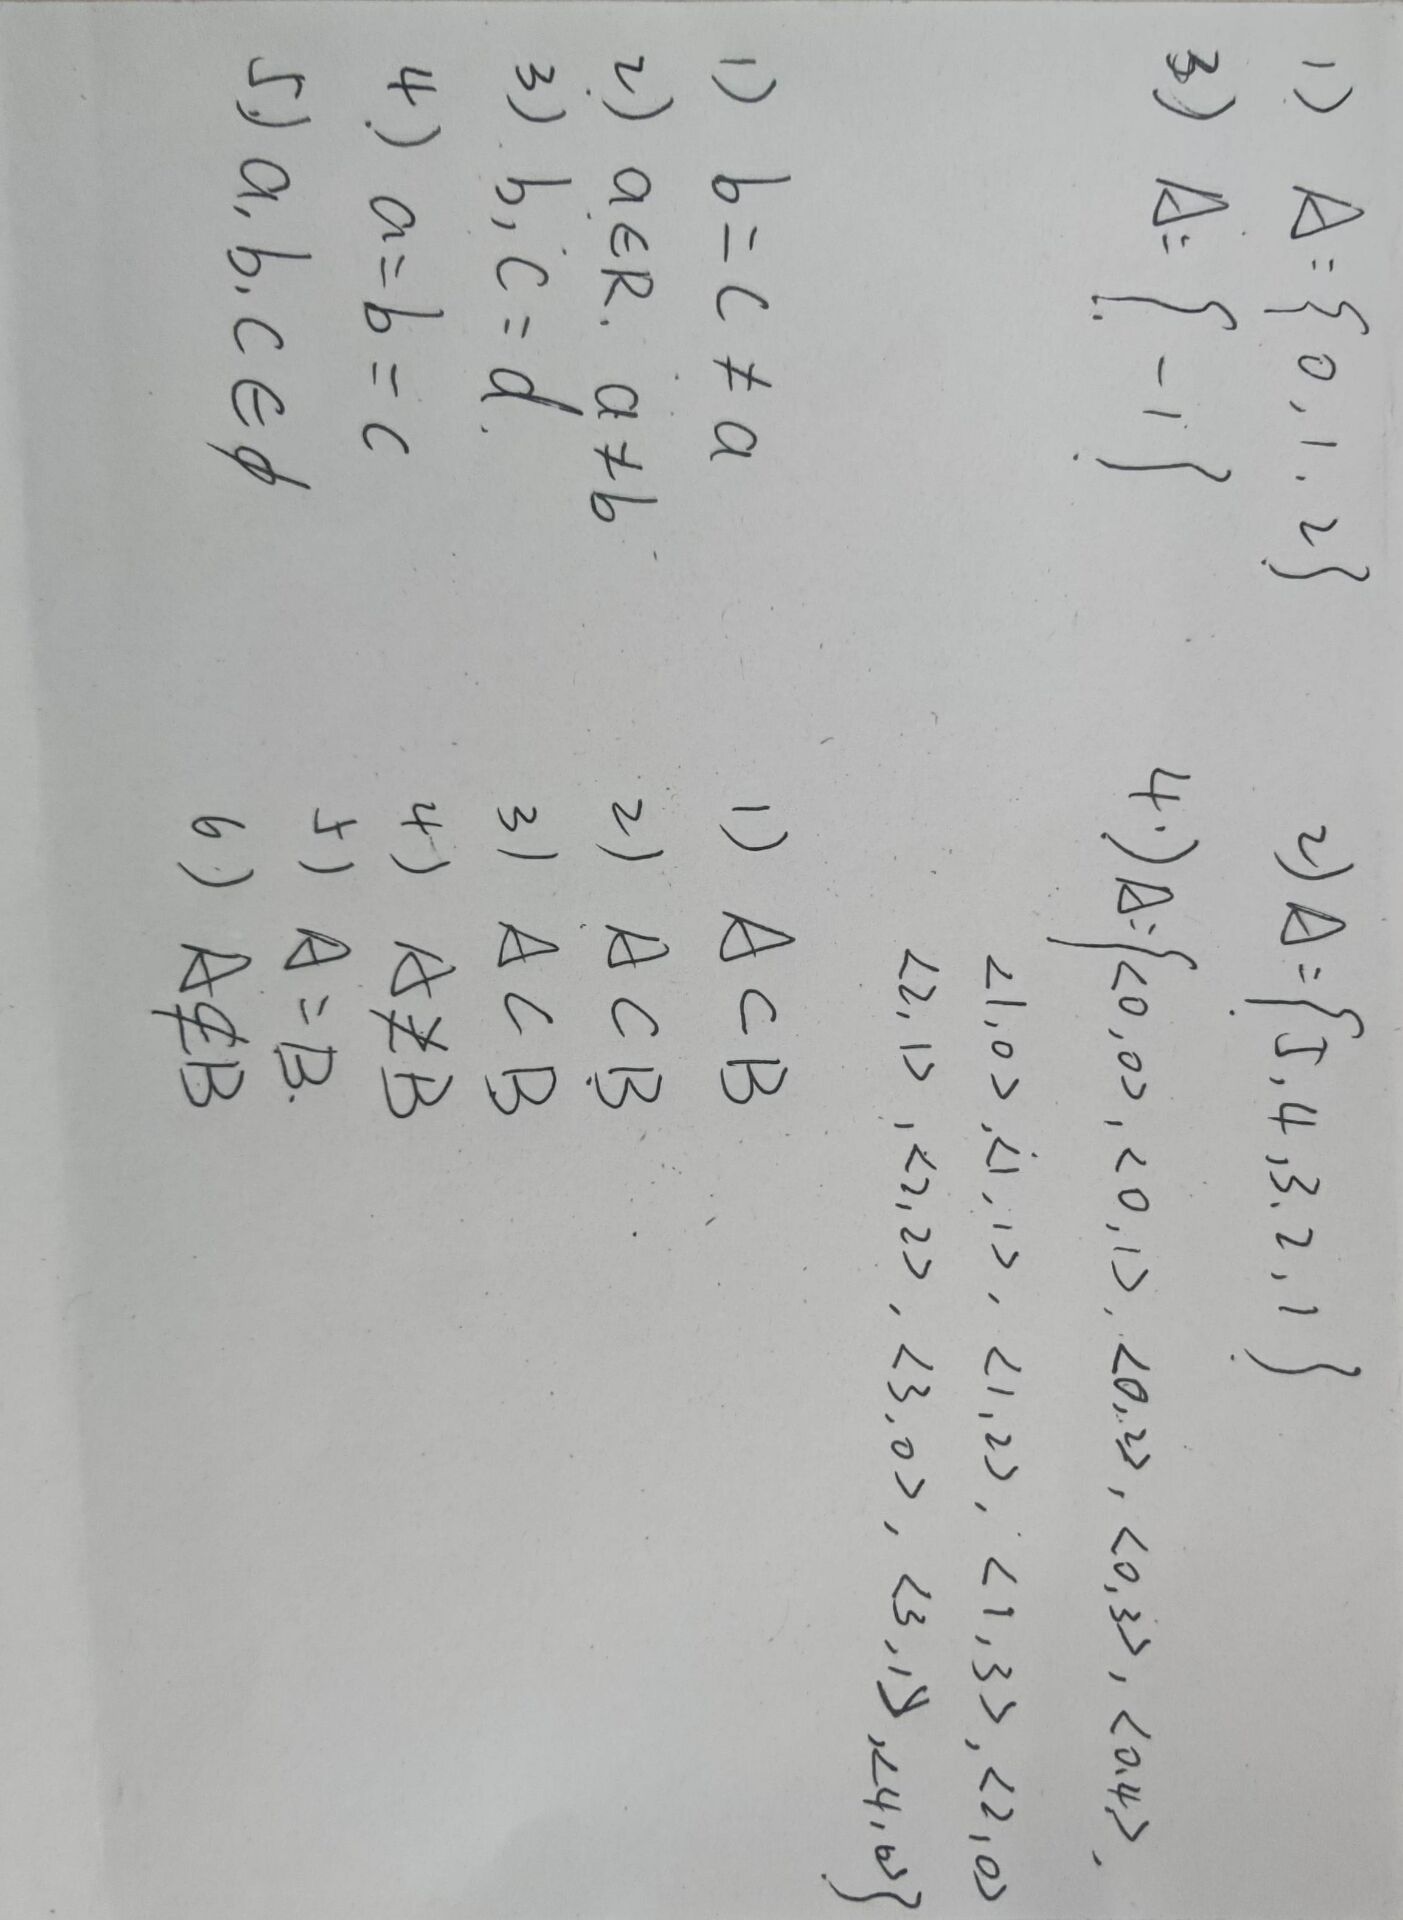 1) A={0,1.2}
2) A={5,4,3.2,1}
3) A={-1}
4.) A={<0,0>,<0,1>,<0,2>,<0,3>,<0.4>,
<1,0>,<1,1>,<1,2>,<1,3>,<2,0>
<2,1>,<2,2>,<3,0>,<3,1>,<4,0>}
1) b=c≠a
2) a∈R. a≠b
3) b,c=d.
4.) a=b=c
5.) a,b,c∈∮
1) A⊂B
2) A⊂B
3) A⊂B
4) A≠B
5) A=B.
6) A⊄B